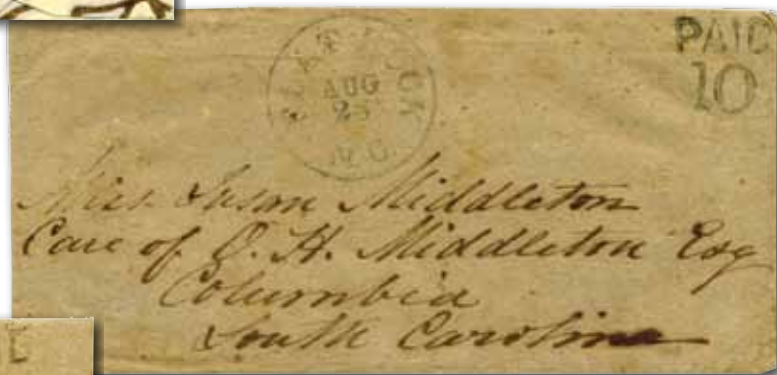 PAID
10
FLAT ROCK
AUG
25
N.C.
Miss Susan Middleton
Care of O. H. Middleton Esq
Columbia
South Carolina